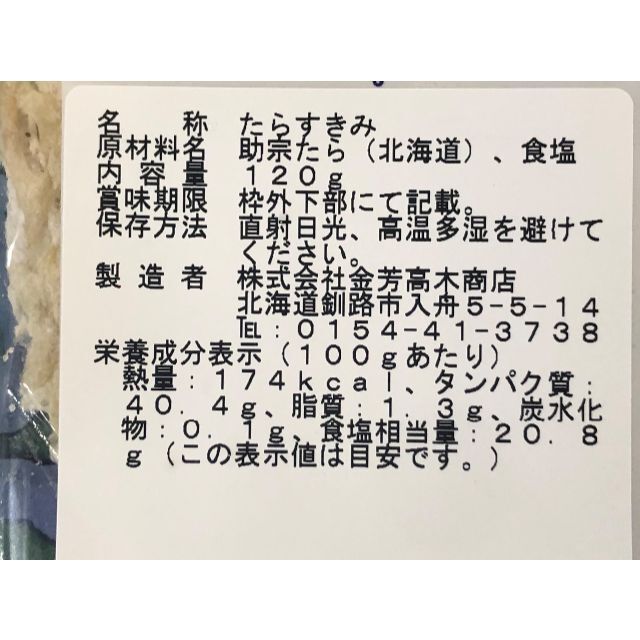 名称 たらすきみ
原材料名 助宗たら（北海道）、食塩
内容量 １２０ｇ
賞味期限 枠外下部にて記載。
保存方法 直射日光、高温多湿を避けて
ください。
製造者 株式会社金芳高木商店
北海道釧路市入舟５−５−１４
℡：０１５４−４１−３７３８
栄養成分表示（１００ｇあたり）
熱量：１７４ｋｃａｌ、タンパク質：
４０．４ｇ、脂質：１．３ｇ、炭水化
物：０．１ｇ、食塩相当量：２０．８
ｇ（この表示値は目安です。）